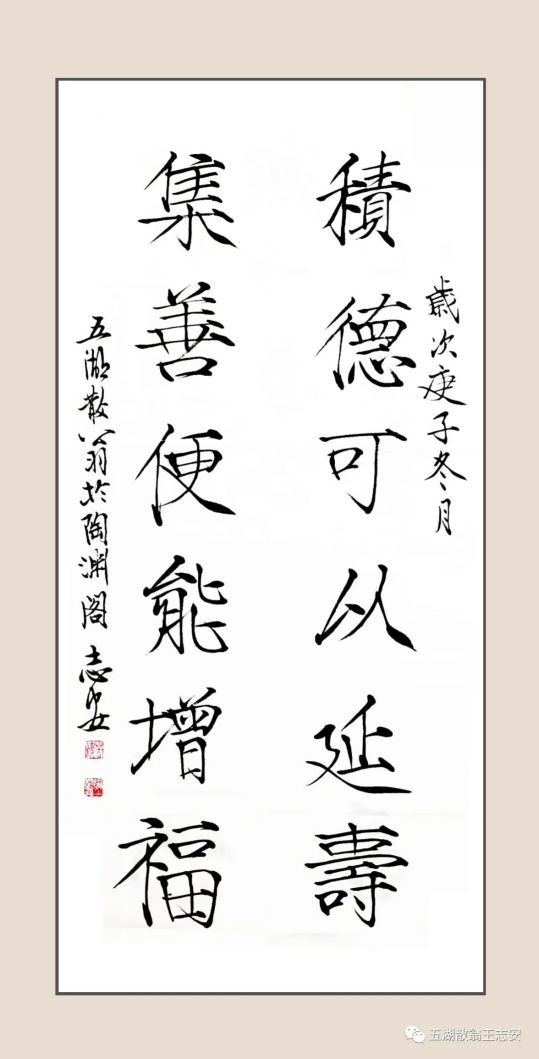 歲次庚子冬月
積德可以延壽
集善便能增福
五湖散翁於陶淵閣 志安
五湖散翁王志安